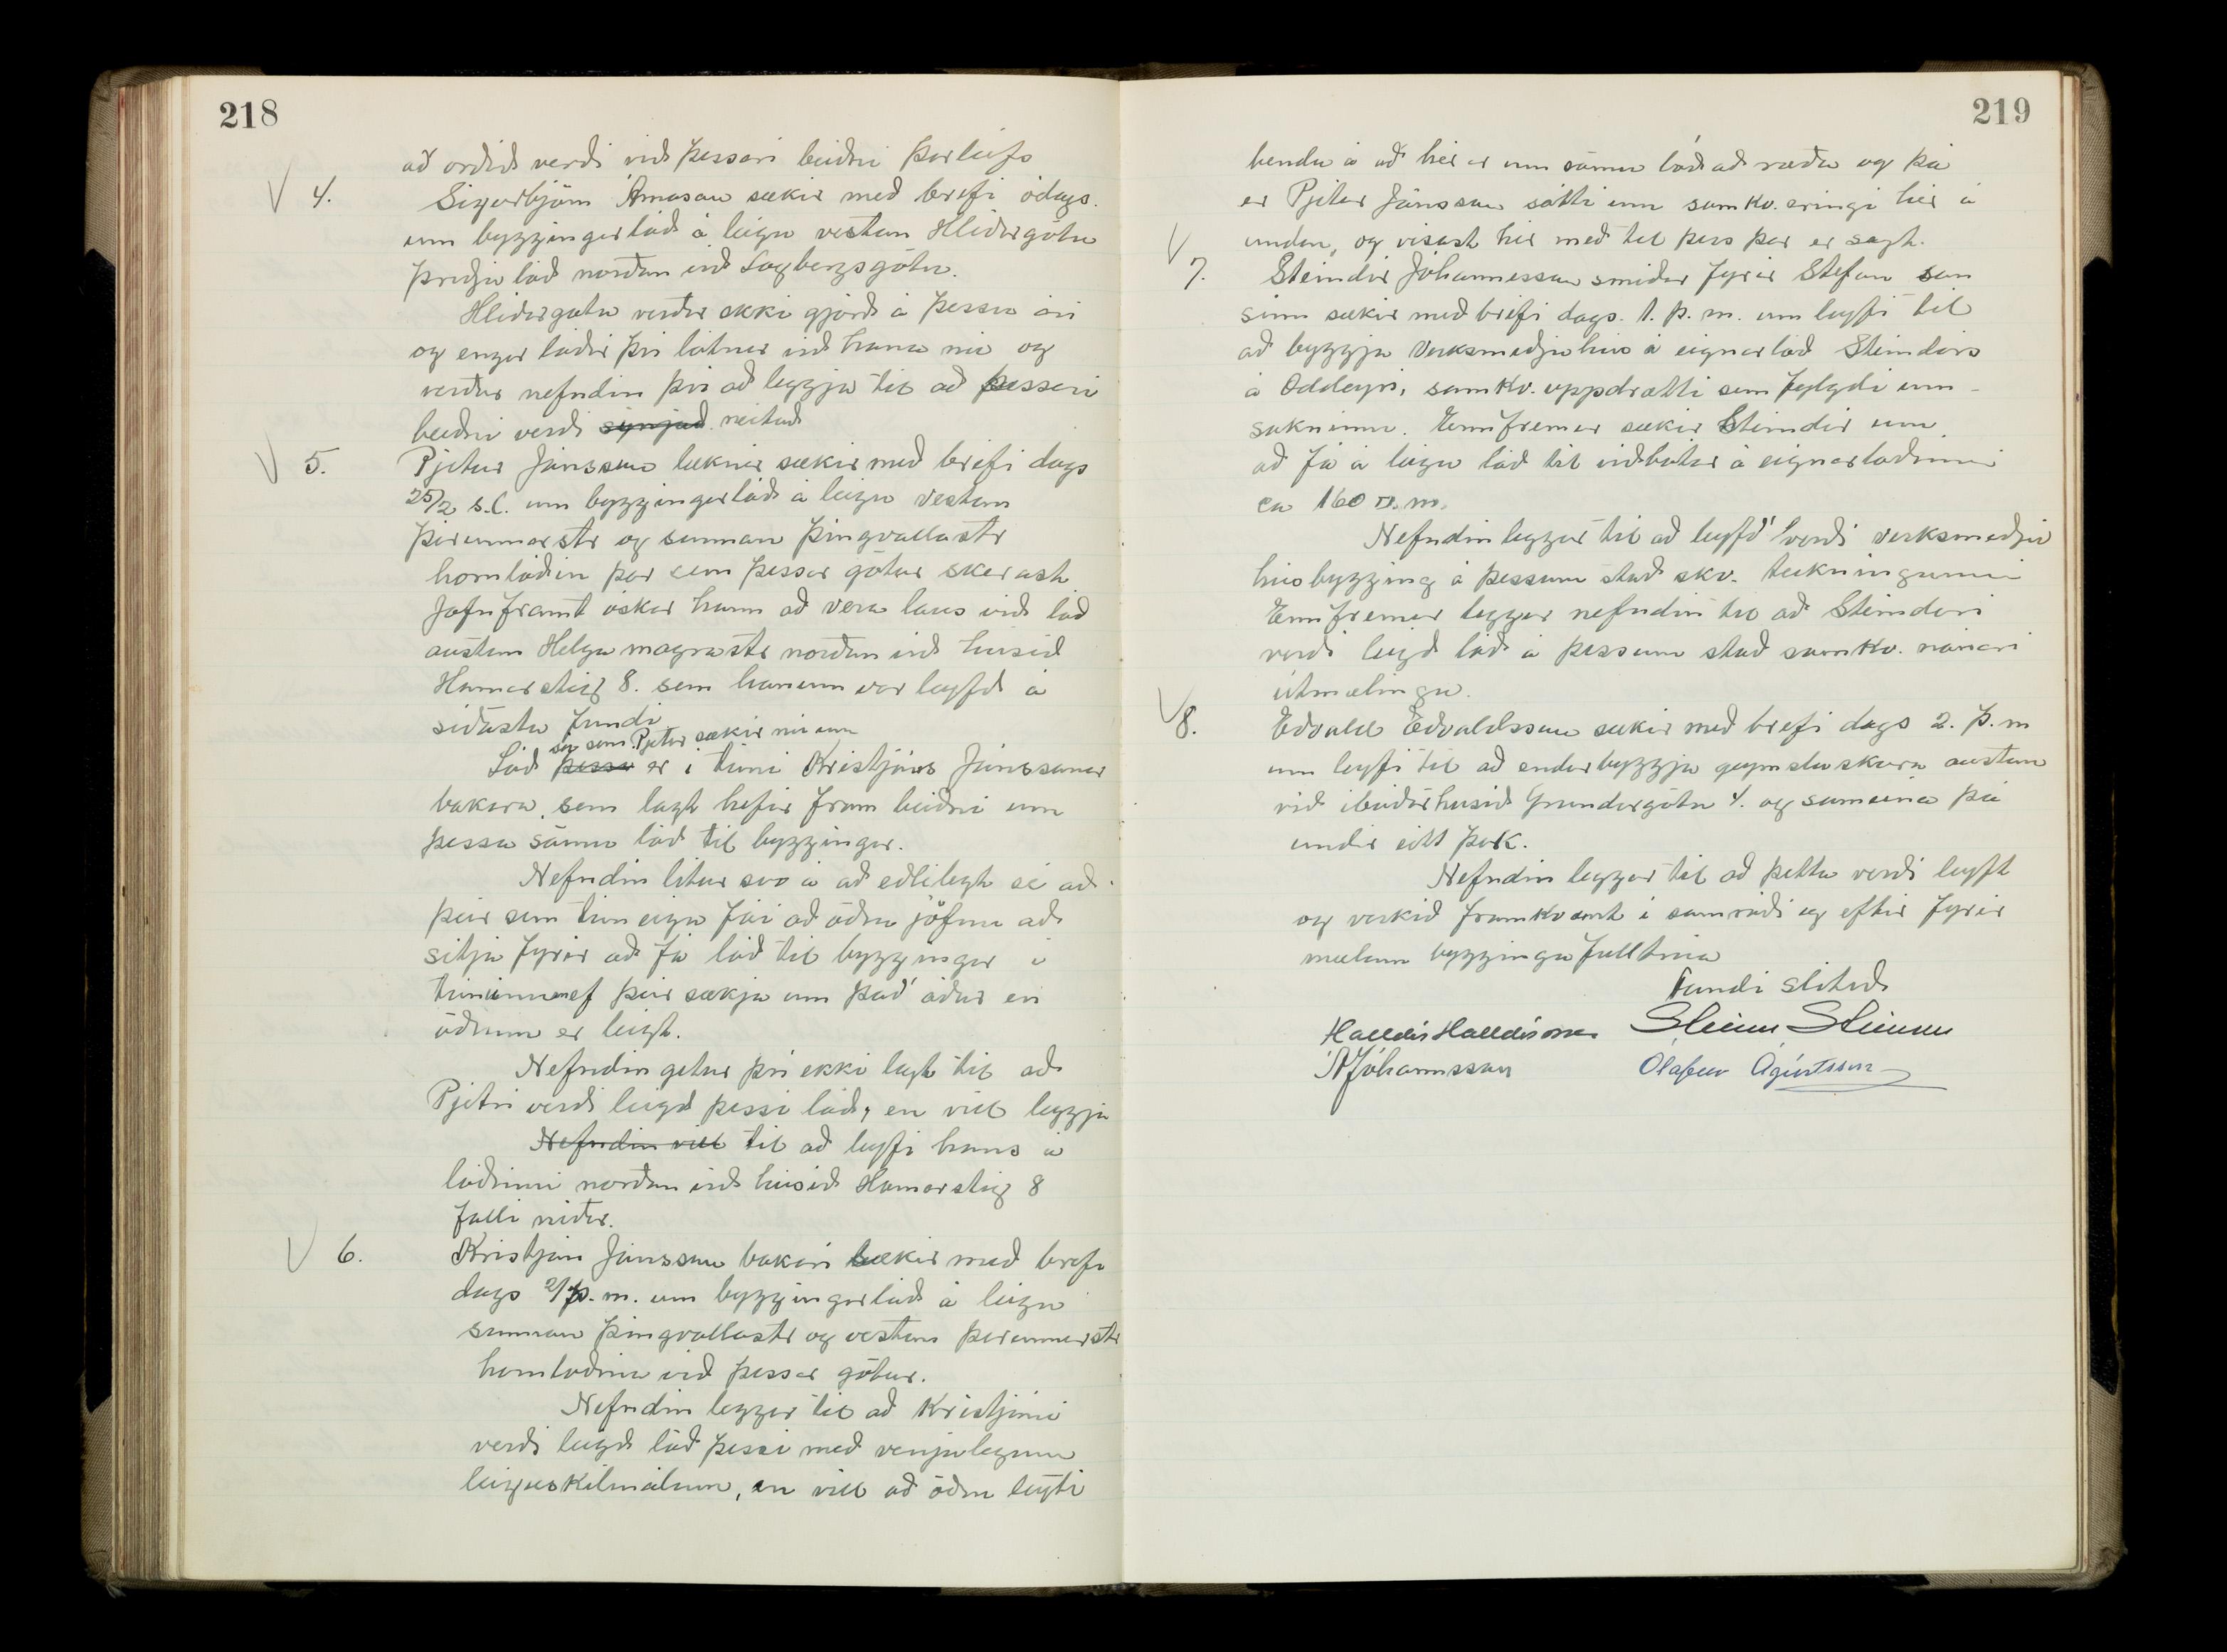 218
að orðið verði við þessari beiðni Þorleifs
V 4. Sigurbjörn Árnason sækir með brefi ódags.
um byggingarlóð á leigu vestan Hlíðargötu
þriðju lóð norðan við Lögbergsgötu.
Hlíðargata verður ekki gjörð á þessu ári
og engar lóðir því látnar við hana nú og
verður nefndin því að leggja til að þessari
beiðni verði synjað neitað
V 5. Pjetur Jónsson læknir sækir með brefi dags
25/2 s.l. um byggingarlóð á leigu vestan
Þórunnarstr og sunnan Þingvallastr
hornlóðin þar sem þessar götur skerast
Jafnframt óskar hann að vera laus við lóð
austan Helga magrastr norðan við húsið
Hamarstíg 8. sem honum var leyfð á
síðasta fundi
sú sem Pjetur sækir nú um
Lóð þessi er í túni Kristjáns Jónssonar
bakara, sem lagt hefir fram beiðni um
þessa sömu lóð til byggingar.
Nefndin lítur svo á að eðlilegt sé að
þeir sem tún eiga fái að öðru jöfnu að
sitja fyrir að fá lóð til byggingar í
túninu ef þeir sækja um það áður en
öðrum er leigt.
Nefndin getur því ekki lagt til að
Pjetri verði leigð þessi lóð, en vill leggja
Nefndin vill til að leyfi hans á
lóðinni norðan við húsið Hamarstíg 8
falli niður.
V 6. Kristján Jónsson bakari sækir með brefi
dags 2/þ.m. um byggingarlóð á leigu
sunnan Þingvallastr og vestan Þórunnarstr
hornlóðina við þessar götur.
Nefndin leggur til að Kristjáni
verði leigð lóð þessi með venjulegum
leiguskilmálum, en vill að öðru leyti
219
benda á að hér er um sömu lóð að ræða og þá
er Pjetur Jónsson sótti um samkv. eringi hér á
undan, og vísast hér með til þess þar er sagt.
V 7. Steindór Jóhannesson smiður fyrir Stefan son
sinn sækir með brefi dags. 1. þ.m. um leyfi til
að byggja Verksmiðjuhús á eignarlóð Steindórs
á Oddeyri, samkv. uppdrætti sem fylgdi um-
sókninni. Ennfremur sækir Steindór um
að fá á leigu lóð til viðbótar á eignarlóðinni
ca 160 □.m.
Nefndin leggur til að leyfð verði verksmiðju
húsbygging á þessum stað skv. teikningunni
Ennfremur leggur nefndin til að Steindóri
verði leigð lóð á þessum stað samkv. nánari
útmælingu.
V 8. Eðvald Eðvaldsson sækir með brefi dags 2. þ.m
um leyfi til að endurbyggja geymsluskúra austan
við íbúðarhúsið Grundargötu 4. og sameina þá
undir eitt þak.
Nefndin leggur til að þetta verði leyft
og verkið framkvæmt í samráði og eftir fyrir
mælum byggingafulltrúa
Fundi slitið
Halldór Halldórsson Steinn Steinsen
Jóhannsson Olafur Agústsson